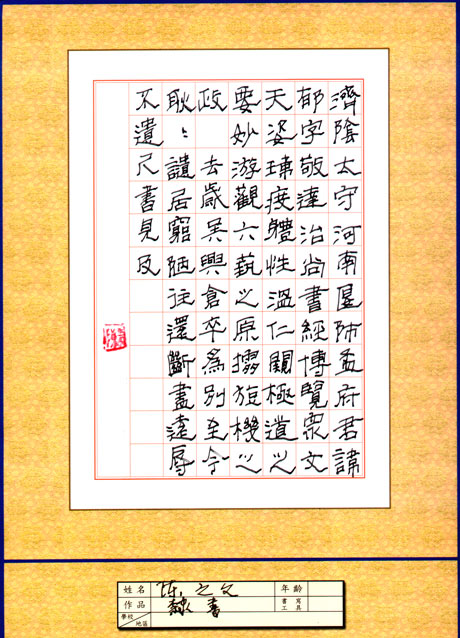 濟陰太守河南匽师孟府君諱
郁字敬達治尚書經博覽眾文
天姿體性溫仁闡極道之
要妙游觀六藝之原機之
政 去歲吳興倉卒為別至今
耿〻居窮陋往還斷盡遠辱
不遺尺書見及
姓名 陈之文 年齡
作品 隸書 書寫工具
學校/地區